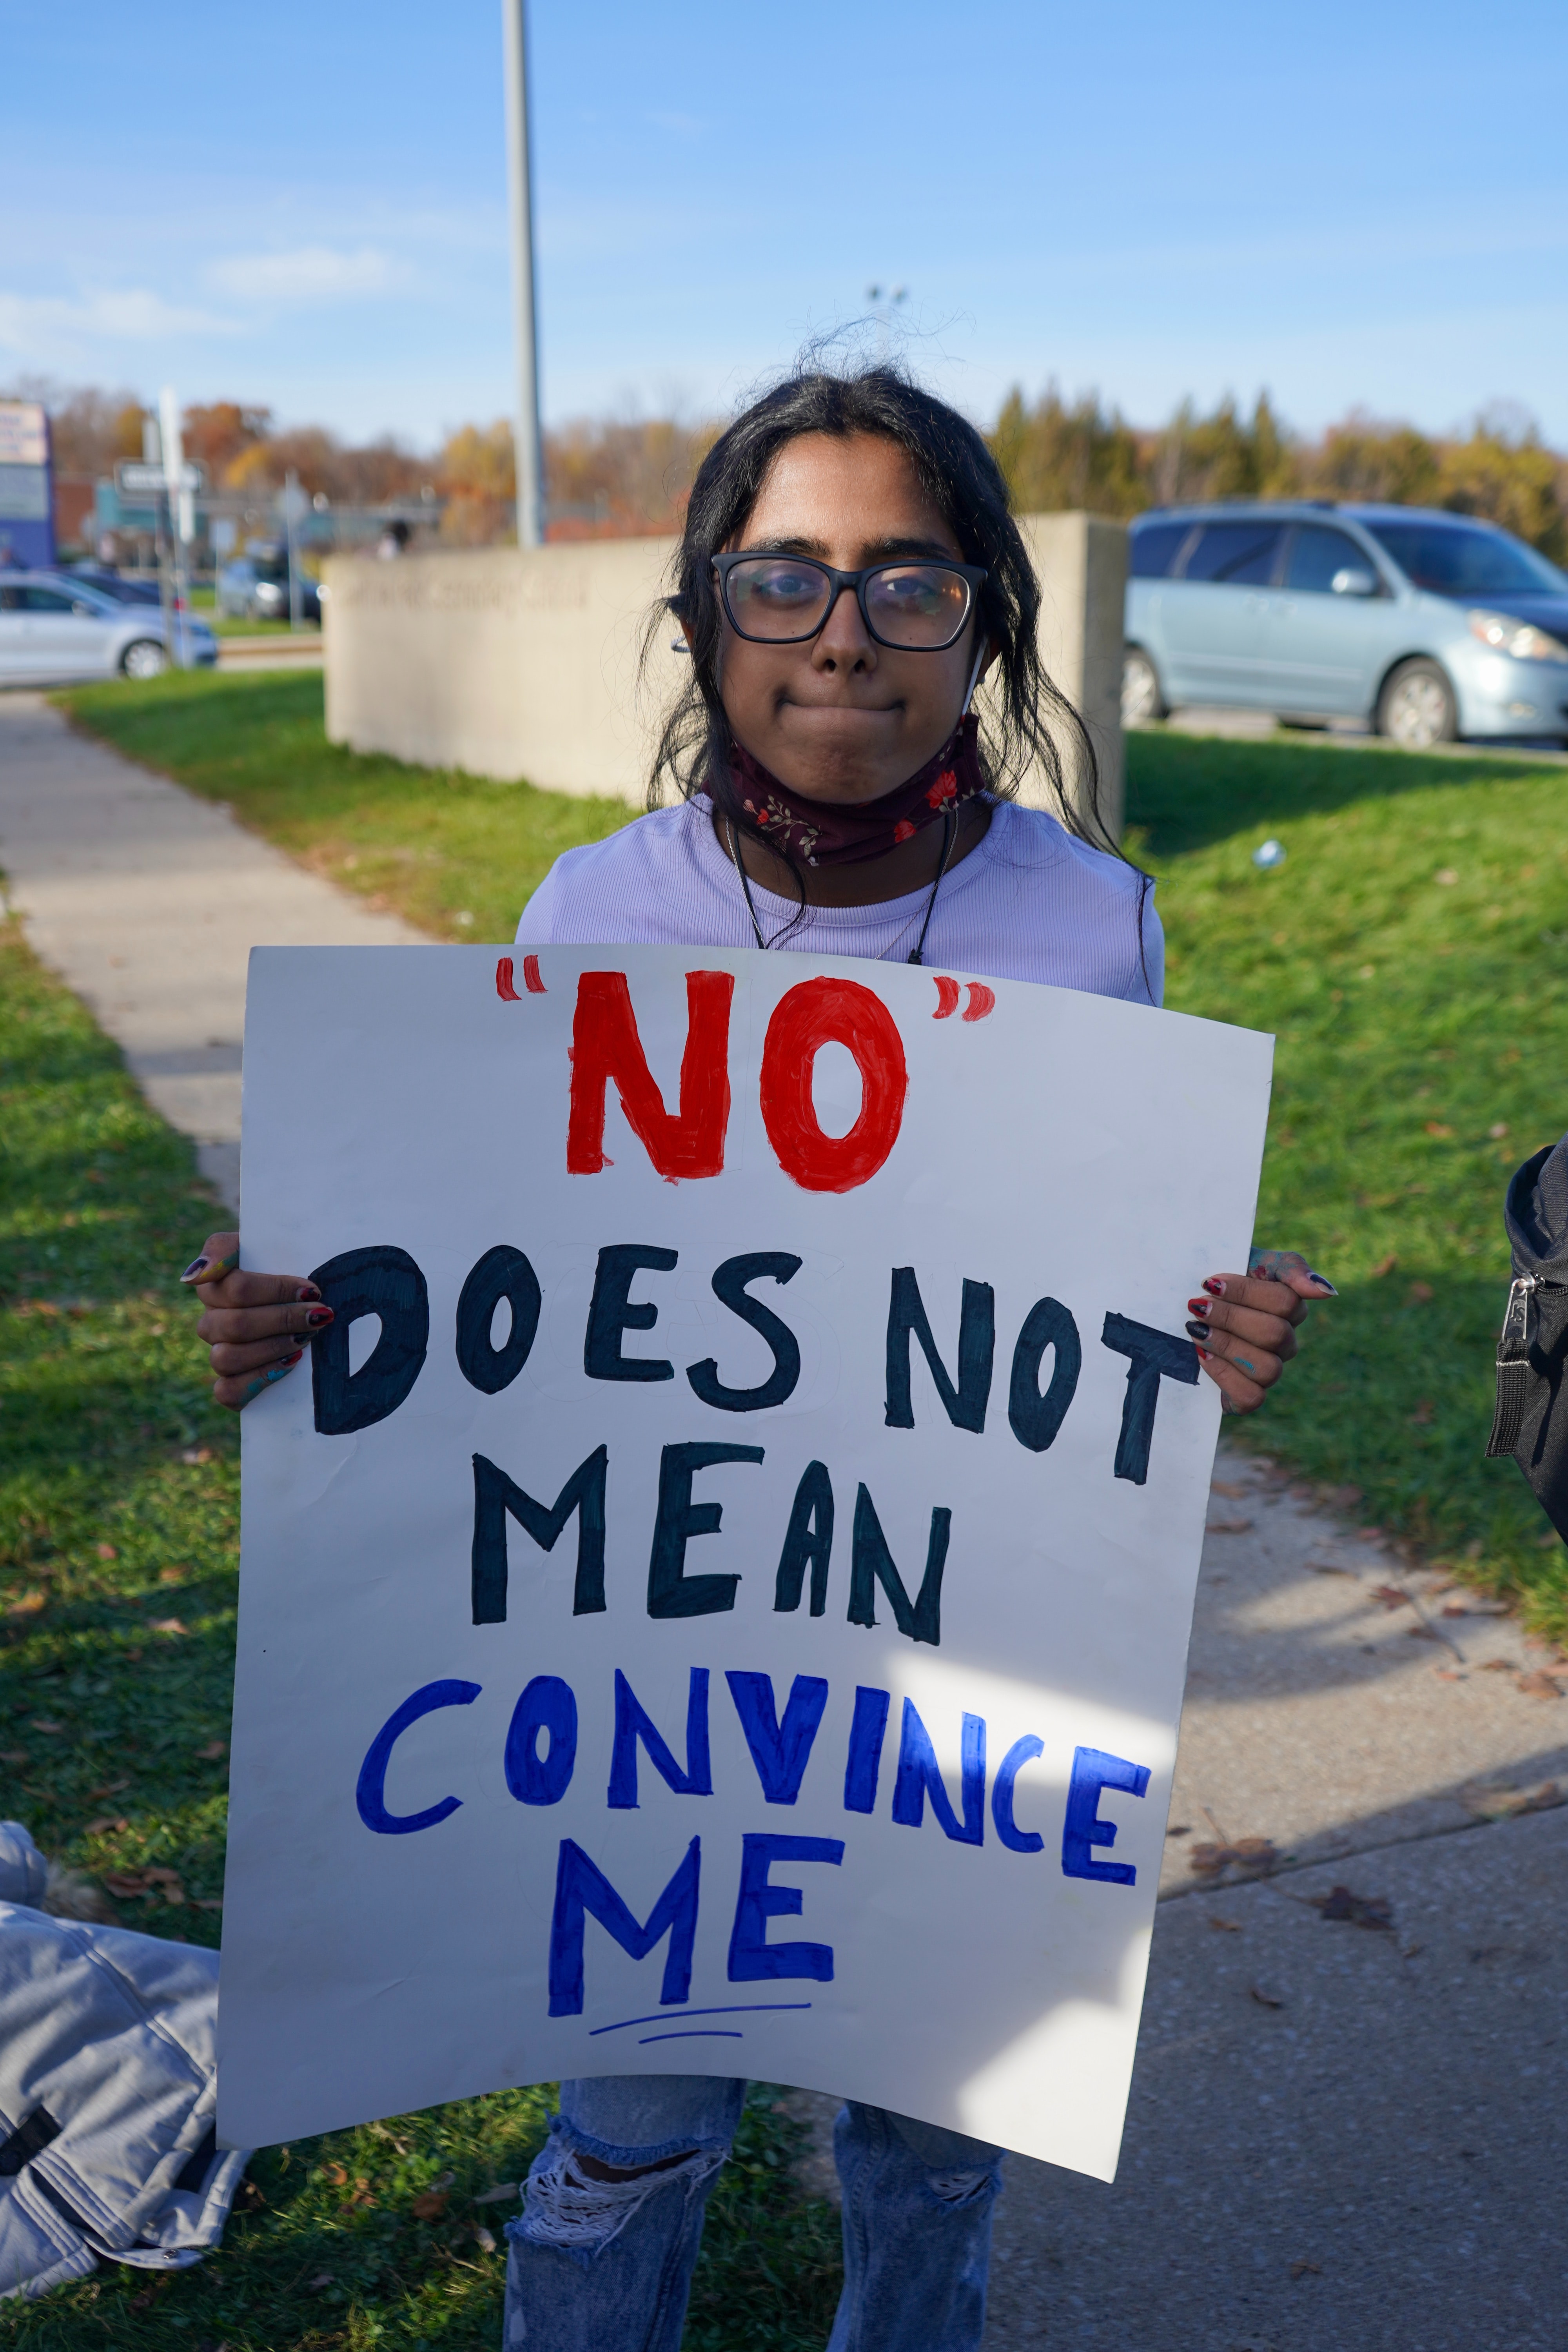 "NO"
DOES NOT
MEAN
CONVINCE
ME